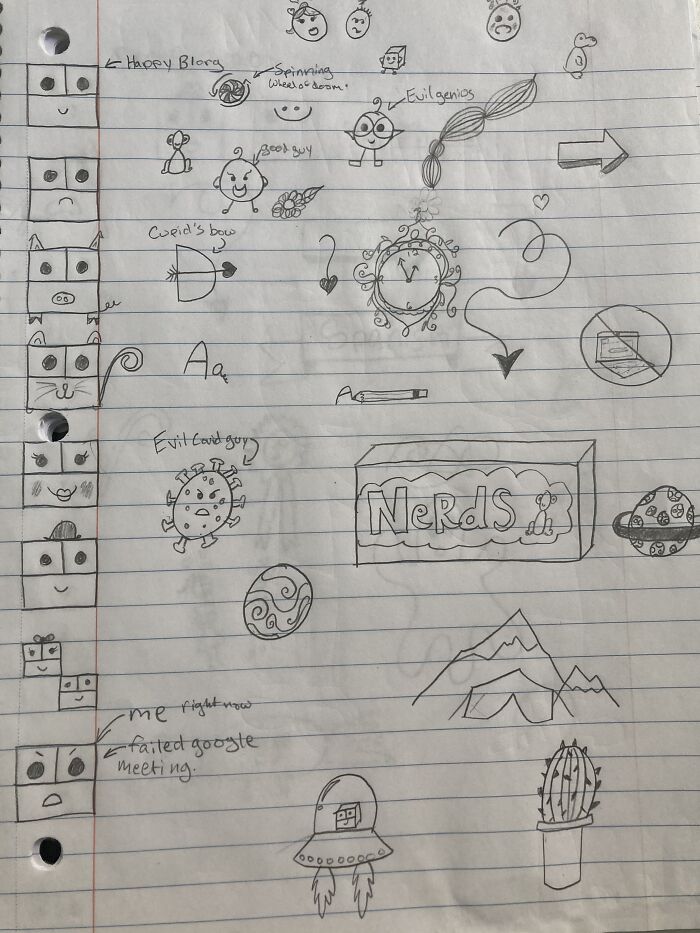 Happy Blorg
Spinning
wheel of doom.
Evil genios
good guy
Cupid's bow
12
6
Aa
A
Evil Covid guy
NeRdS
me right now
failed google
meeting.